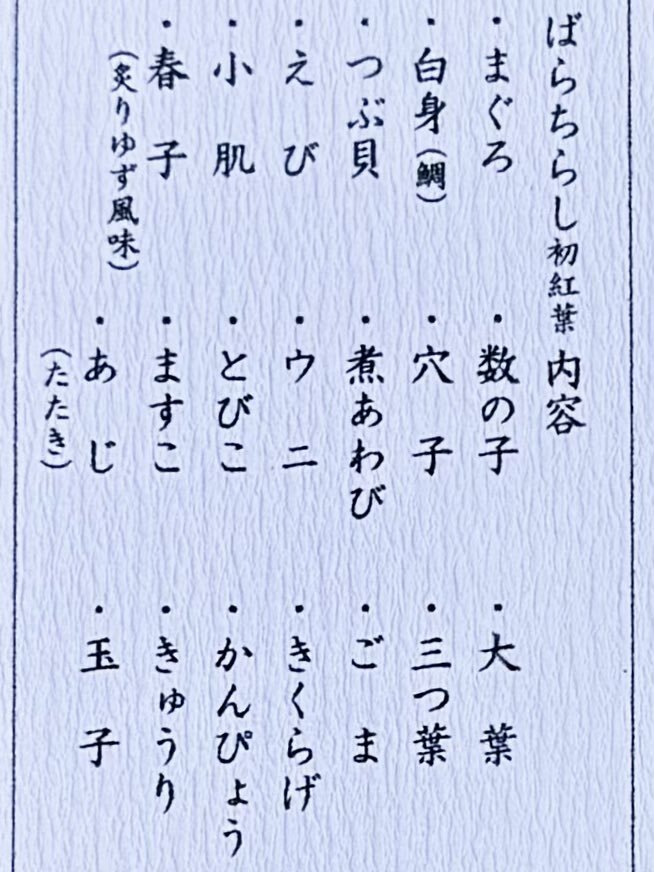 ばらちらし初紅葉 内容
・まぐろ
・白身(鯛)
・つぶ貝
・えび
・小肌
・春子
(炙りゆず風味)
・数の子
・穴子
・煮あわび
・ウニ
・とびこ
・ますこ
・あじ
(たたき)
・大葉
・三つ葉
・ごま
・きくらげ
・かんぴょう
・きゅうり
・玉子